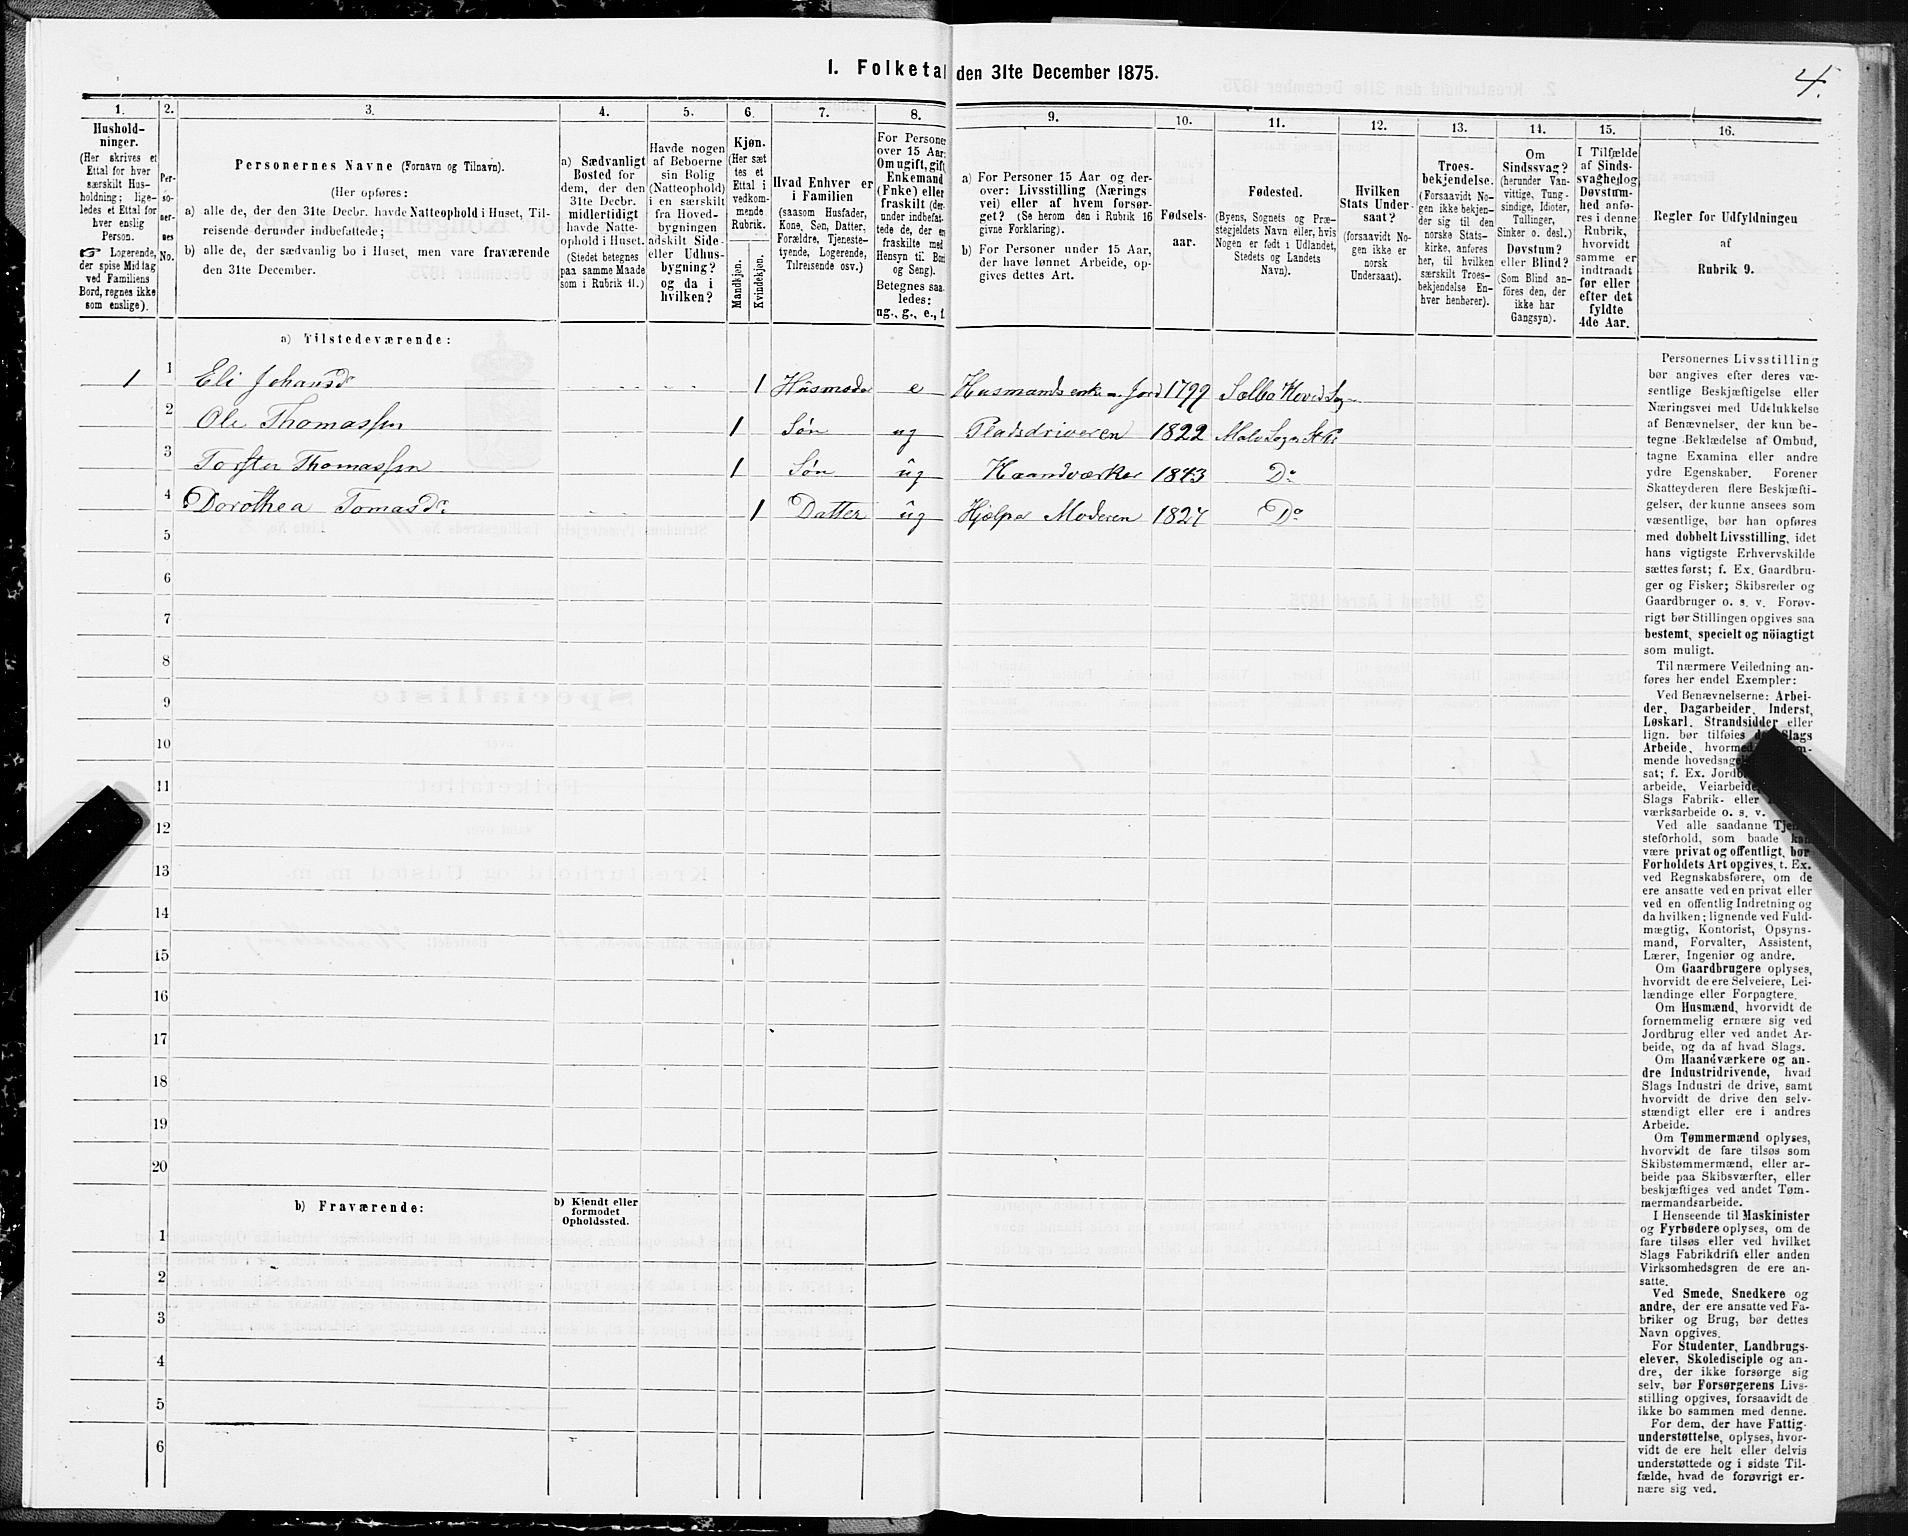 1. Folketal den 31te December 1875.
4.
1. 2. 3. 4. 5. 6. 7. 8. 9. 10. 11. 12. 13. 14. 15. 16.
Hushold-
ninger.
(Her skrives et
Ettal for hver
særskilt Hus-
holdning; lige-
ledes et Ettal for
hver enslig
Person.
☞ Logerende,
der spise Middag
ved Familiens
Bord, regnes ikke
som enslige).
Per-
so-
ner-
nes
No.
Personernes Navne (Fornavn og Tilnavn).
(Her opføres:
a) alle de, der den 31te Decbr. havde Natteophold i Huset, Til-
reisende derunder indbefattede;
b) alle de, der sædvanlig bo i Huset, men vare fraværende
den 31te December.
a) Sædvanligt
Bosted for
dem, der den
31te Decbr.
midlertidigt
havde Natte-
ophold i Huset.
(Stedet betegnes
paa samme Maade
som i Rubrik 11.)
Havde nogen
af Beboerne
sin Bolig
(Natteophold)
i en særskilt
fra Hoved-
bygningen
adskilt Side-
eller Udhus-
bygning?
og da i
hvilken?
Kjøn.
(Her sæt-
tes et
Ettal i
vedkom-
mende
Rubrik.
Mandkjøn.
Kvindekjøn.
Hvad Enhver er
i Familien
(saasom Husfader,
Kone, Søn, Datter,
Forældre, Tjeneste-
tyende, Logerende,
Tilreisende osv.)
For Personer
over 15 Aar:
Om ugift, gift,
Enkemand
(Enke) eller
fraskilt (der-
under indbefat-
tede de, der ere
fraskilte med
Hensyn til Bord
og Seng).
Betegnes saa-
ledes:
ug., g., e., f.
a) For Personer 15 Aar og der-
over: Livsstilling (Nærings
vei) eller af hvem forsør-
get? (Se herom den i Rubrik 16
givne Forklaring).
b) For Personer under 15 Aar,
der have lønnet Arbeide, op-
gives dettes Art.
Fødsels-
aar.
Fødested.
(Byens, Sognets og Præ-
stegjeldets Navn eller, hvis
Nogen er født i Udlandet,
Stedets og Landets
Navn).
Hvilken
Stats Under-
saat?
(forsaavidt No-
gen ikke er
norsk
Undersaat).
Troes-
bekjendelse.
(Forsaavidt No-
gen ikke bekjen-
der sig til den
norske Stats-
kirke, anføres
her, til hvilken
særskilt Troes-
bekjendelse En-
hver henhører).
Om
Sindssvag?
(herunder Van-
vittige, Tung-
sindige, Idioter,
Tullinger,
Sinker o. desl.)
Døvstum?
eller Blind?
(Som Blind an-
føres den, der
ikke har
Gangsyn).
I Tilfælde
af Sinds-
svaghed og
Døvstum-
hed anfø-
res i denne
Rubrik,
hvorvidt
samme er
indtraadt
før eller
efter det
fyldte
4de Aar.
Regler for Udfyldningen
af
Rubrik 9.
a) Tilstedeværende:
1 1 Eli Johansd 1 Husmoder e Husmandsenke m. Jord 1799 Sælbo Hoved Sogn
2 Ole Thomassen 1 Søn ug Pladsdriveren 1822 Malv Sogn
3 Torsten Thomassen 1 Søn ug Haandværker 1843 Do
4 Dorothea Tomasdr 1 Datter ug Hjælper Moderen 1827 Do
5
6
7
8
9
10
11
12
13
14
15
16
17
18
19
20
b) Fraværende:
b) Kjendt eller
formodet
Opholdssted.
1
2
3
4
5
6
Personernes Livsstilling
bør angives efter deres væ-
sentlige Beskjæftigelse eller
Næringsvei med Udelukkelse
af Benævnelser, der kun be-
tegne Beklædelse af Ombud,
tagne Examina eller andre
ydre Egenskaber. Forener
Skatteyderen flere Beskjæfti-
gelser, der kunne ansees som
væsentlige, bør han opføres
med dobbelt Livsstilling, idet
hans vigtigste Erhvervskilde
sættes først; f. Ex. Gaardbru-
ger og Fisker; Skibsreder og
Gaardbruger o. s. v. Forøv-
rigt bør Stillingen opgives saa
bestemt, specielt og nöiagtigt
som muligt.
Til nærmere Veiledning an-
føres her endel Exempler:
Ved Benævnelserne: Arbei-
der, Dagarbeider, Inderst,
Løskarl, Strandsidder eller
lign. bør tilføies Slags
Arbeide, hvormed
mende hovedsagel
sat; f. Ex. Jord
arbeide, Veiarbeide,
Slags Fabrik- eller
værksarbeide o. s. v.
Ved alle saadanne Tjen
steforhold, som baade kan
være privat og offentligt, bør
Forholdets Art opgives, t. Ex.
ved Regnskabsførere, om de
ere ansatte ved en privat eller
ved en offentlig Indretning og
da hvilken; lignende ved Fuld-
mægtig, Kontorist, Opsyns-
mand, Forvalter, Assistent,
Lærer, Ingeniør og andre.
Om Gaardbrugere oplyses,
hvorvidt de ere Selveiere, Lei-
lændinge eller Forpagtere.
Om Husmænd, hvorvidt de
fornemmelig ernære sig ved
Jordbrug eller ved andet Ar-
beide, og da af hvad Slags.
Om Haandværkere og an-
dre Industridrivende, hvad
Slags Industri de drive, samt
hvorvidt de drive den selv-
stændigt eller ere i andres
Arbeide.
Om Tømmermænd oplyses,
hvorvidt de fare tilsøs som
Skibstømmermænd, eller ar-
beide paa Skibsværfter, eller
beskjæftiges ved andet Tøm-
mermandsarbeide.
I Henseende til Maskinister
og Fyrbødere oplyses, om de
fare tilsøs eller ved hvilket
Slags Fabrikdrift eller anden
Virksomhedsgren de ere an-
satte.
Ved Smede, Snedkere og
andre, der ere ansatte ved Fa-
briker og Brug, bør dettes
Navn opgives.
For Studenter, Landbrugs-
elever, Skoledisciple og an-
dre, der ikke forsørge sig
selv, bør Forsørgerens Livs-
stilling opgives, forsaavidt de
ikke bo sammen med denne.
For dem, der have Fattig-
understøttelse, oplyses, hvor-
vidt de ere helt eller delvis
understøttede og i sidste Til-
fælde, hvad de forøvrigt er-
nære sig ved.